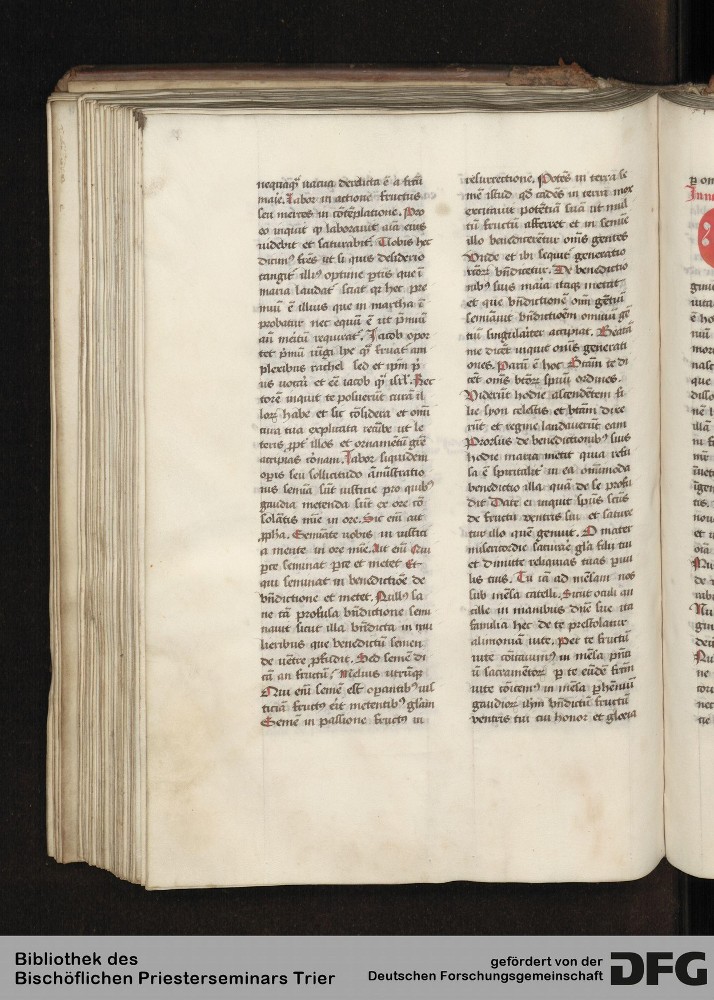 nequaq̄ꝫ uacua derelicta ē a fru
maīe. Labor in actione fructus
seu merces in cōtēplatione. Pro
eo inquit ꝙ laborauit aīa eius
uidebit et saturabit᷒. Nobis hec
dicimꝰ frēs ut si quis desiderio
tangit᷒ illiꝰ optime ꝑtis que ī
maria laudat᷒ sciat qr hec pre
miū ē illius que in martha ē
probatur nec equū ē ut p̄miū
añ meritū requirat᷒. Jacob opor
tet
plexibus rachel sed et ip̄m
us uocari et eē iacob
torē inquit te posuerūt curā il
loꝝ habe et sic cōsidera et om̄i
cura tua explicata recūbe ut le
teris ꝓpt̄ illos et ornamētū gr̄e
accipias coronam. Labor siquidem
oꝑis seu sollicitudo āmīstratio
nis semia sūt iusticie pro quibꝰ
gaudia metenda sūt ex ore cō
solātis mīe in ore. Sic eiū ait
ꝓpha. Semīate uobis in iustici
a metite in ore mīe. Ait eiū Qui
ꝑce seminat ꝑce et metet Et
qui seminat in benedictiōe de
bn̄dictione et metet. Nullꝰ sa
ne tā profusa bn̄dictione semi
nauit sicut illa bn̄dicta in mu
lieribus que benedictū semen
de uētre ꝓfudit. Sed semē di
cā an fructū? Melius utrūqꝫ
Qui eiū semē est oꝑantibꝰ ius
ticiā fructꝰ erit metentibꝰ gl̄am
Semē in passione fructꝰ in
resurrectione. Potēs in terra se
mē istud ꝙ cadēs in terrā mox
excitauit potētiā suā ut mul
tū fructū afferret et in semīe
illo benedicerētur om̄s gentes
Vnde et ibi sequit᷒ generatio
rc̄oꝝ bn̄dicetur. De benedictio
nibꝰ suis maīa itaqꝫ metat᷒
et que bn̄dictionē om̄i gētiū
semīauit bn̄dictioēm omniū gē
tiū singularit᷒ accipiat. Beatā
me dicēt inquit om̄s generati
ones. Parū ē hoc. Eciam te di
cēt om̄s bt̄oꝝ spūū ordines.
Viderūt hodie ascendētem fi
lie syon celestis et btām dixe
rūt et regine laudauerūt eam
Prorsus de benedictionibꝰ suis
hodie maria metit quia refu
sa ē spūalit᷒ in eā om̄imoda
benedictio illa quā de se profu
dit Date ei inquit sp̄us scūs
de fructu uentris sui et sature
tur illo quē genuit. O mater
misericordie saturare gl̄a filii tui
et dimitte reliquias tuas ꝑuu
lis tuis. Tu iā ad mēsam nos
sub mēsa catelli. Sicut oculi an
cille in manibus dn̄e sue ita
familia hec de te prestolatur
alimoniā uite. Per te fructū
uite cōicauimꝰ in mēsa
ū sacramētoꝝ ꝑ te eūdē fructū
uite cōicemꝰ in mēsa ꝑhēniū
gaudioꝝ ihm̄ bn̄dictū fructū
uentris tui cui honor et gloria
Bibliothek des
Bischöflichen Priesterseminars Trier
gefördert von der
Deutschen Forschungsgemeinschaft
DFG